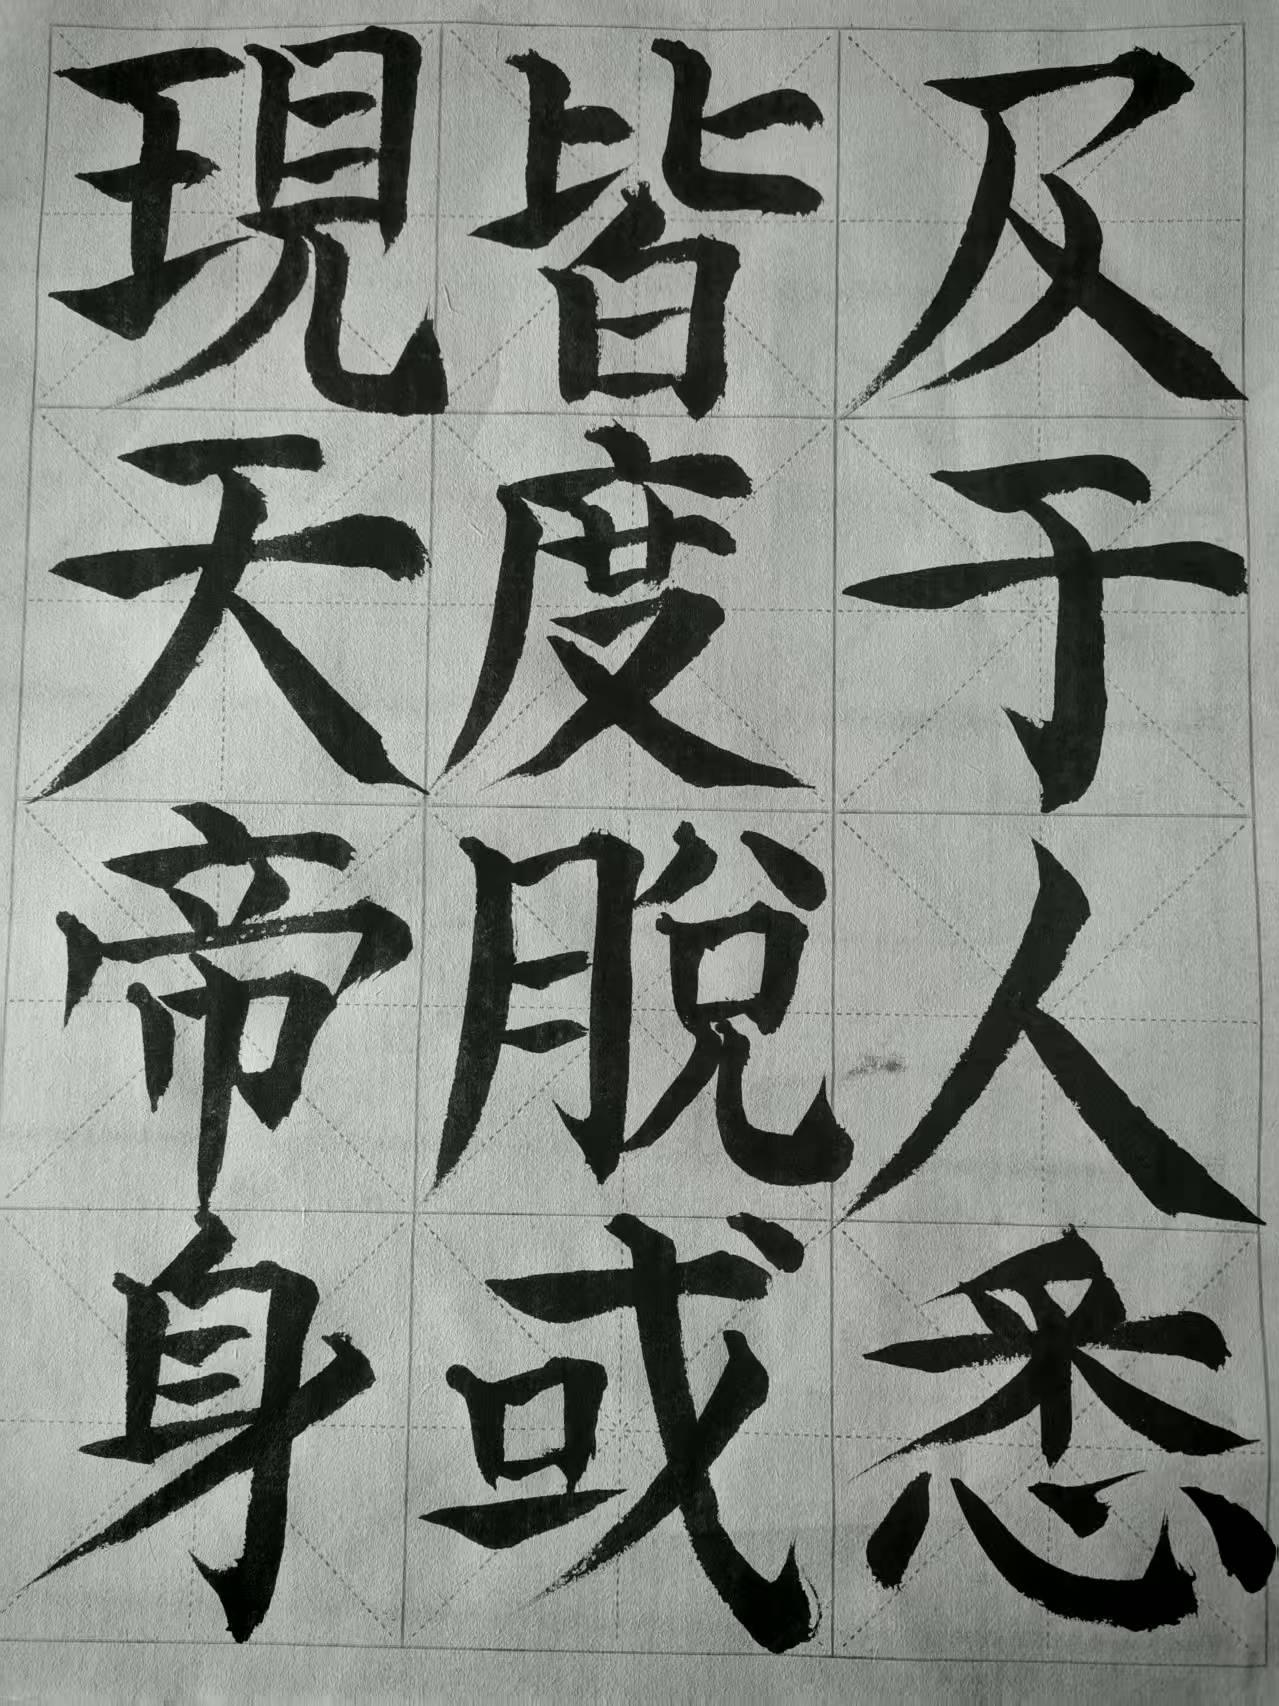 及于人悉
皆度脫或
現天帝身